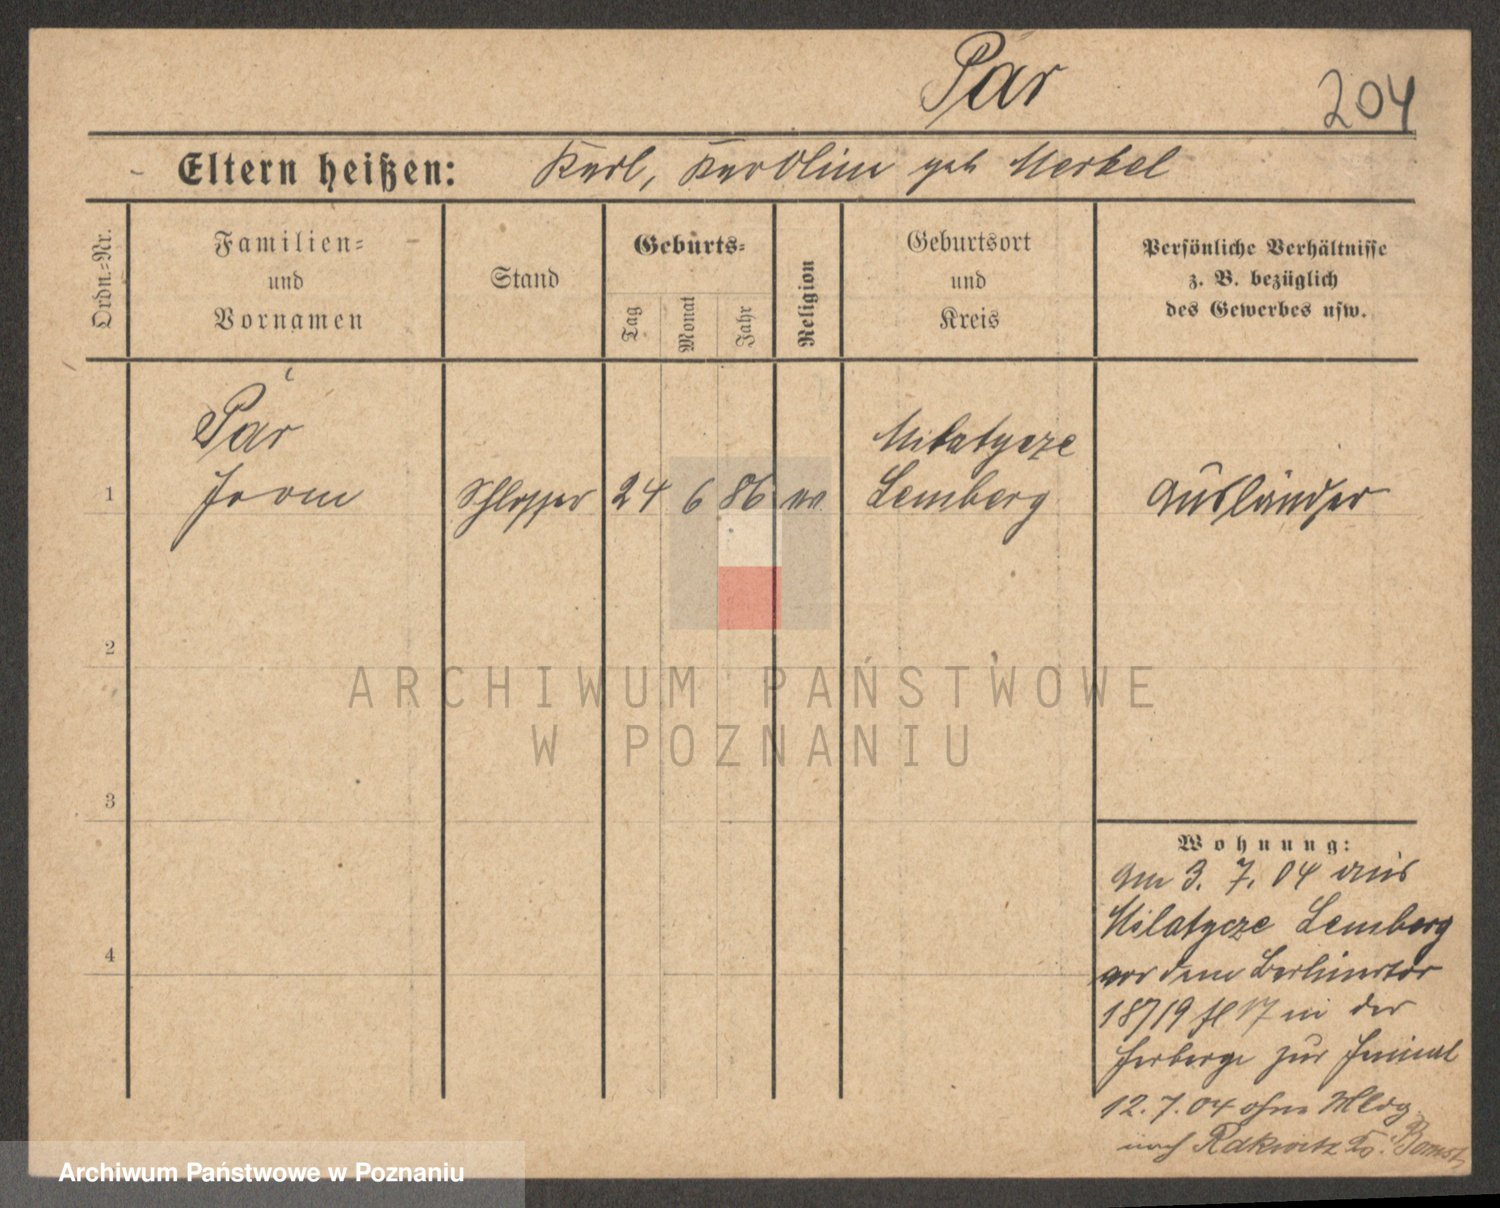 Pär
204
Eltern heißen: Karl, Karoline geb Merkel
Ordn.-Nr.
Familien-
und
Vornamen
Stand
Geburts-
Tag
Monat
Jahr
Religion
Geburtsort
und
Kreis
Persönliche Verhältnisse
z. B. bezüglich
des Gewerbes usw.
Pär
Milatycze
1 Schlosser 24 6 86 ev Lemberg Ausländer
2
ARCHIWUM PAŃSTWOWE
W POZNANIU
3
Wohnung:
am 3. 7. 04 aus
Milatycze Lemberg
vor dem Berlinertor
18/19 in der
Herberge zur Heimat
12. 7. 04 ohne Mldg
nach Rakwitz Bomst
4
Archiwum Państwowe w Poznaniu